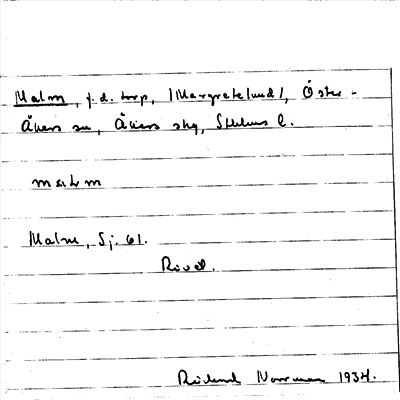 Malm, f.d. torp, /Margretelund/, Öster-
Åkers sn, Åkers skg, Sthlms l.
Malm, Sj. 61.
Rickard Norrman 1934.